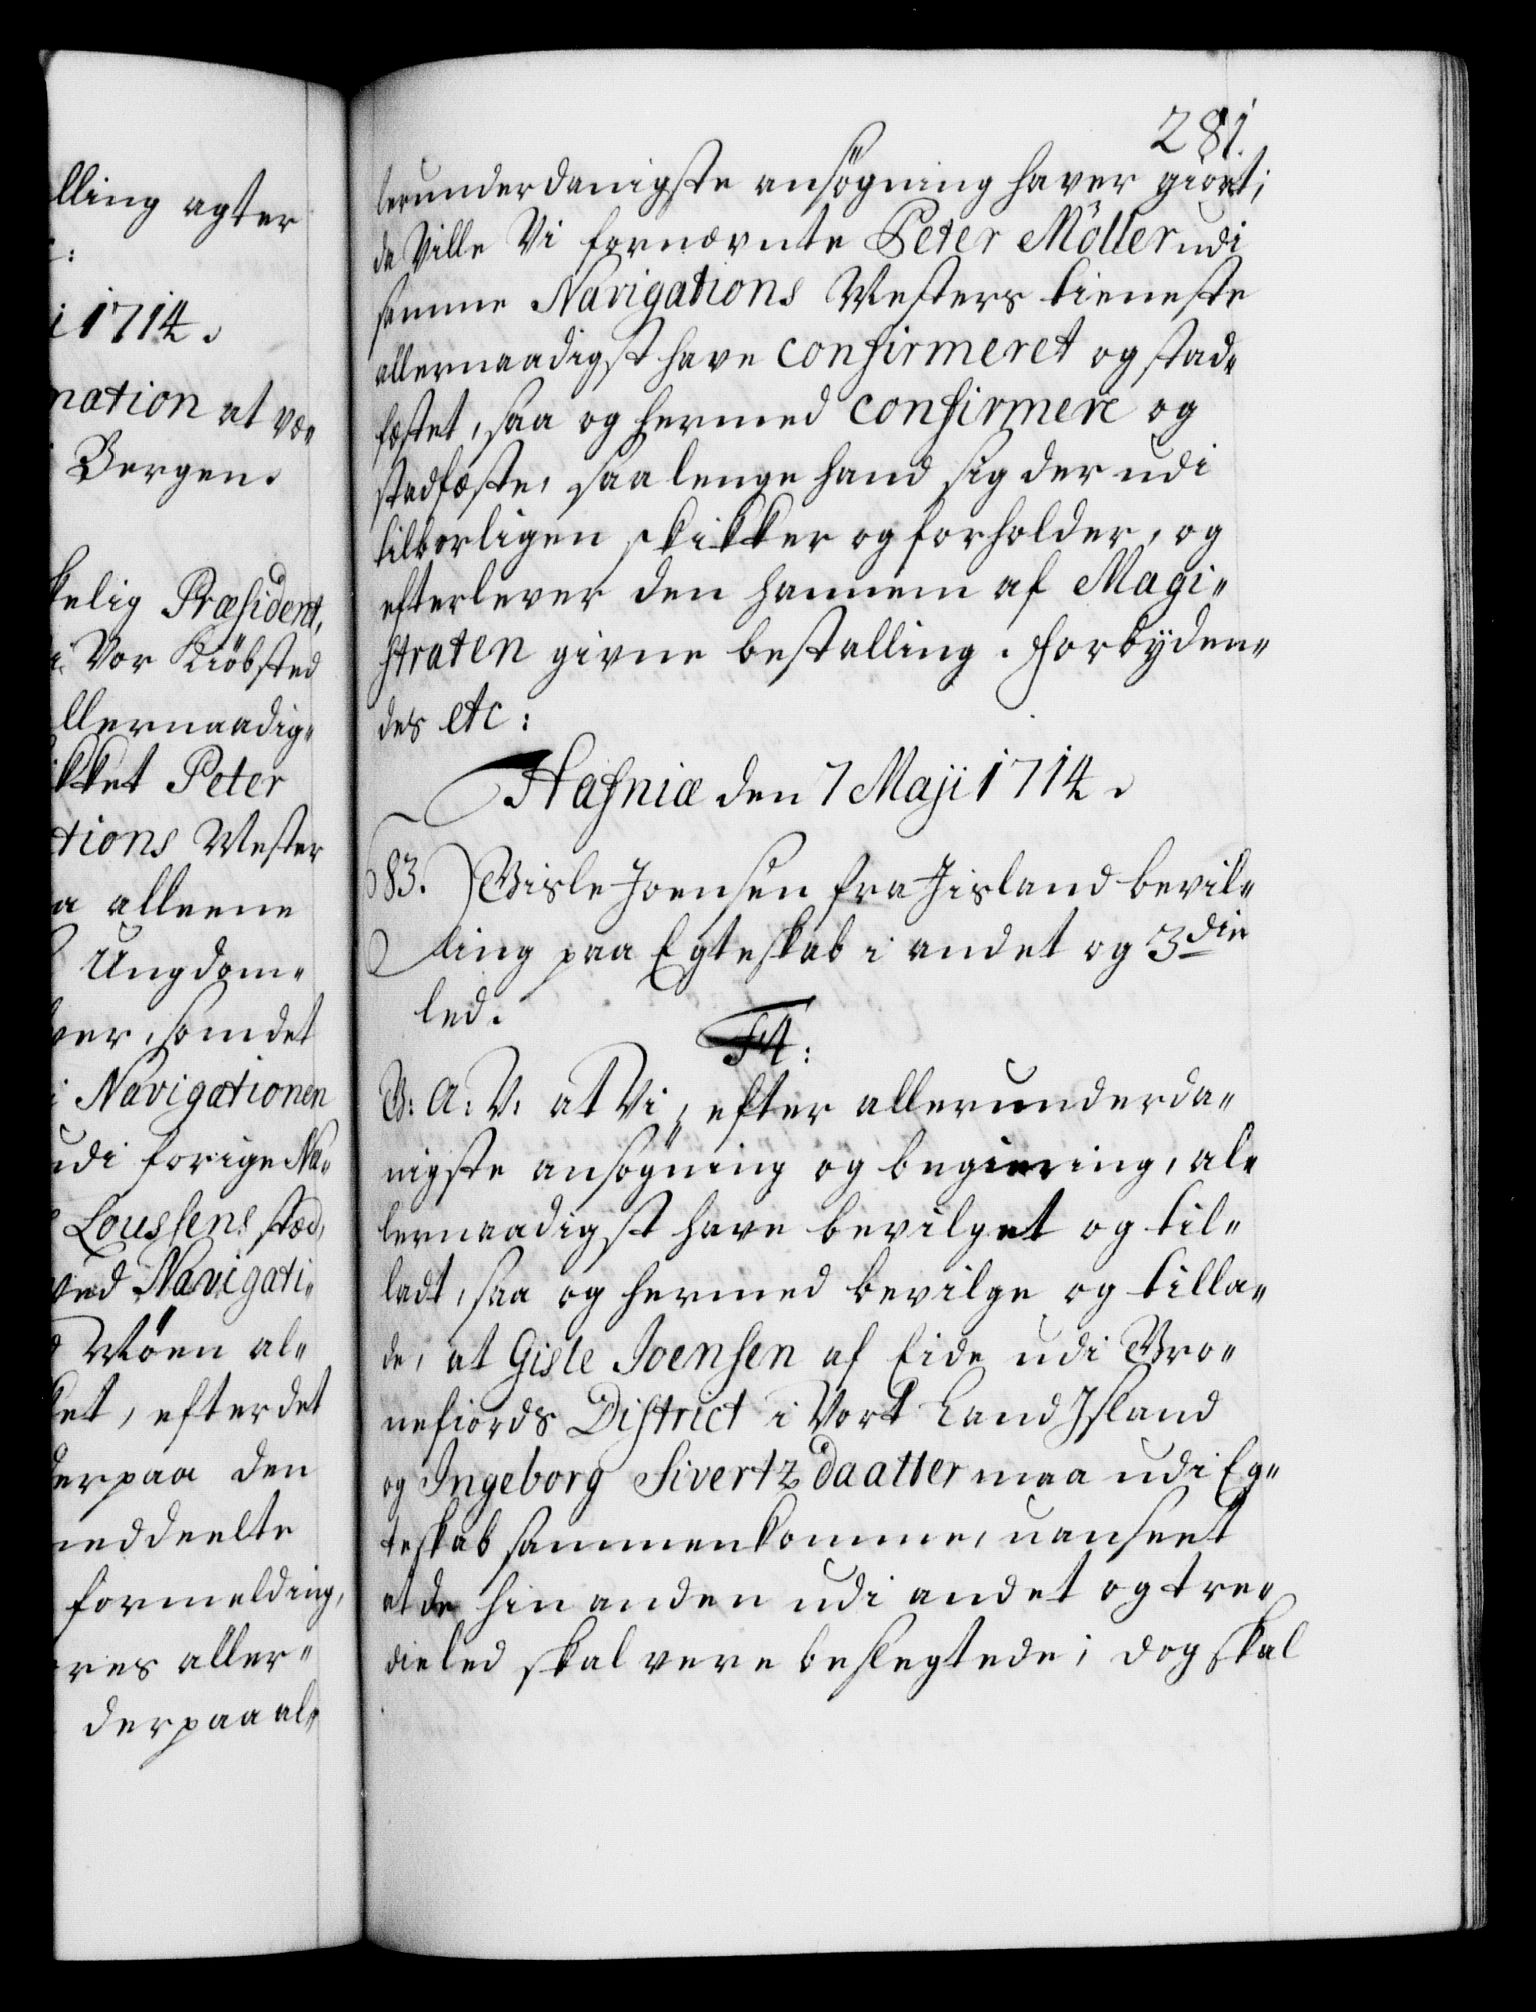 lling agter
i 1714.
nation at væ„
Bergen.
kelig Præsident,
Vor Kiöbsted
llernaadig„
ikket Peter
tions Mester
a alleene
Ungdom„
ver, som det
i Navigationen
udi forige Na„
Loussens stæd,
ved Navigati„
al„
ket, efter det
derpaa den
meddeelte
formelding,
res aller„
derpaa al„
281.
lerunderdanigste ansögning haver giört;
da Ville Vi fornævnte Peter Möller udi
samme Navigations Mesters tieneste
allernaadigst have confirmeret og stad„
fæstet, saa og hermed confirmere og
stadfæste, saa lenge hand sig der udi
tilbørligen skikker og forholder, og
efterlever den hannem af Magi„
straten givne bestalling. Forbyden„
des etc:
Hafniæ den 7 Maji 1714.
83. Gisle Joensen fra Jisland bevil„
ling paa Egteskab i andet og 3die
led.
F4:
G: A: V: at Vi, efter allerunderda„
nigste ansögning og begiering, al„
lernaadigst have bevilget og til„
ladt, saa og hermed bevilge og tilla„
de, at Gisle Joensen af Eide udi Gro„
nefiords District i Vort Land Island
og Ingeborg Sivertz daatter maa udi Eg„
teskab sammenkomme, uanseet
at de hinanden udi andet og tre„
die led skal vere beslegtede; dog skal